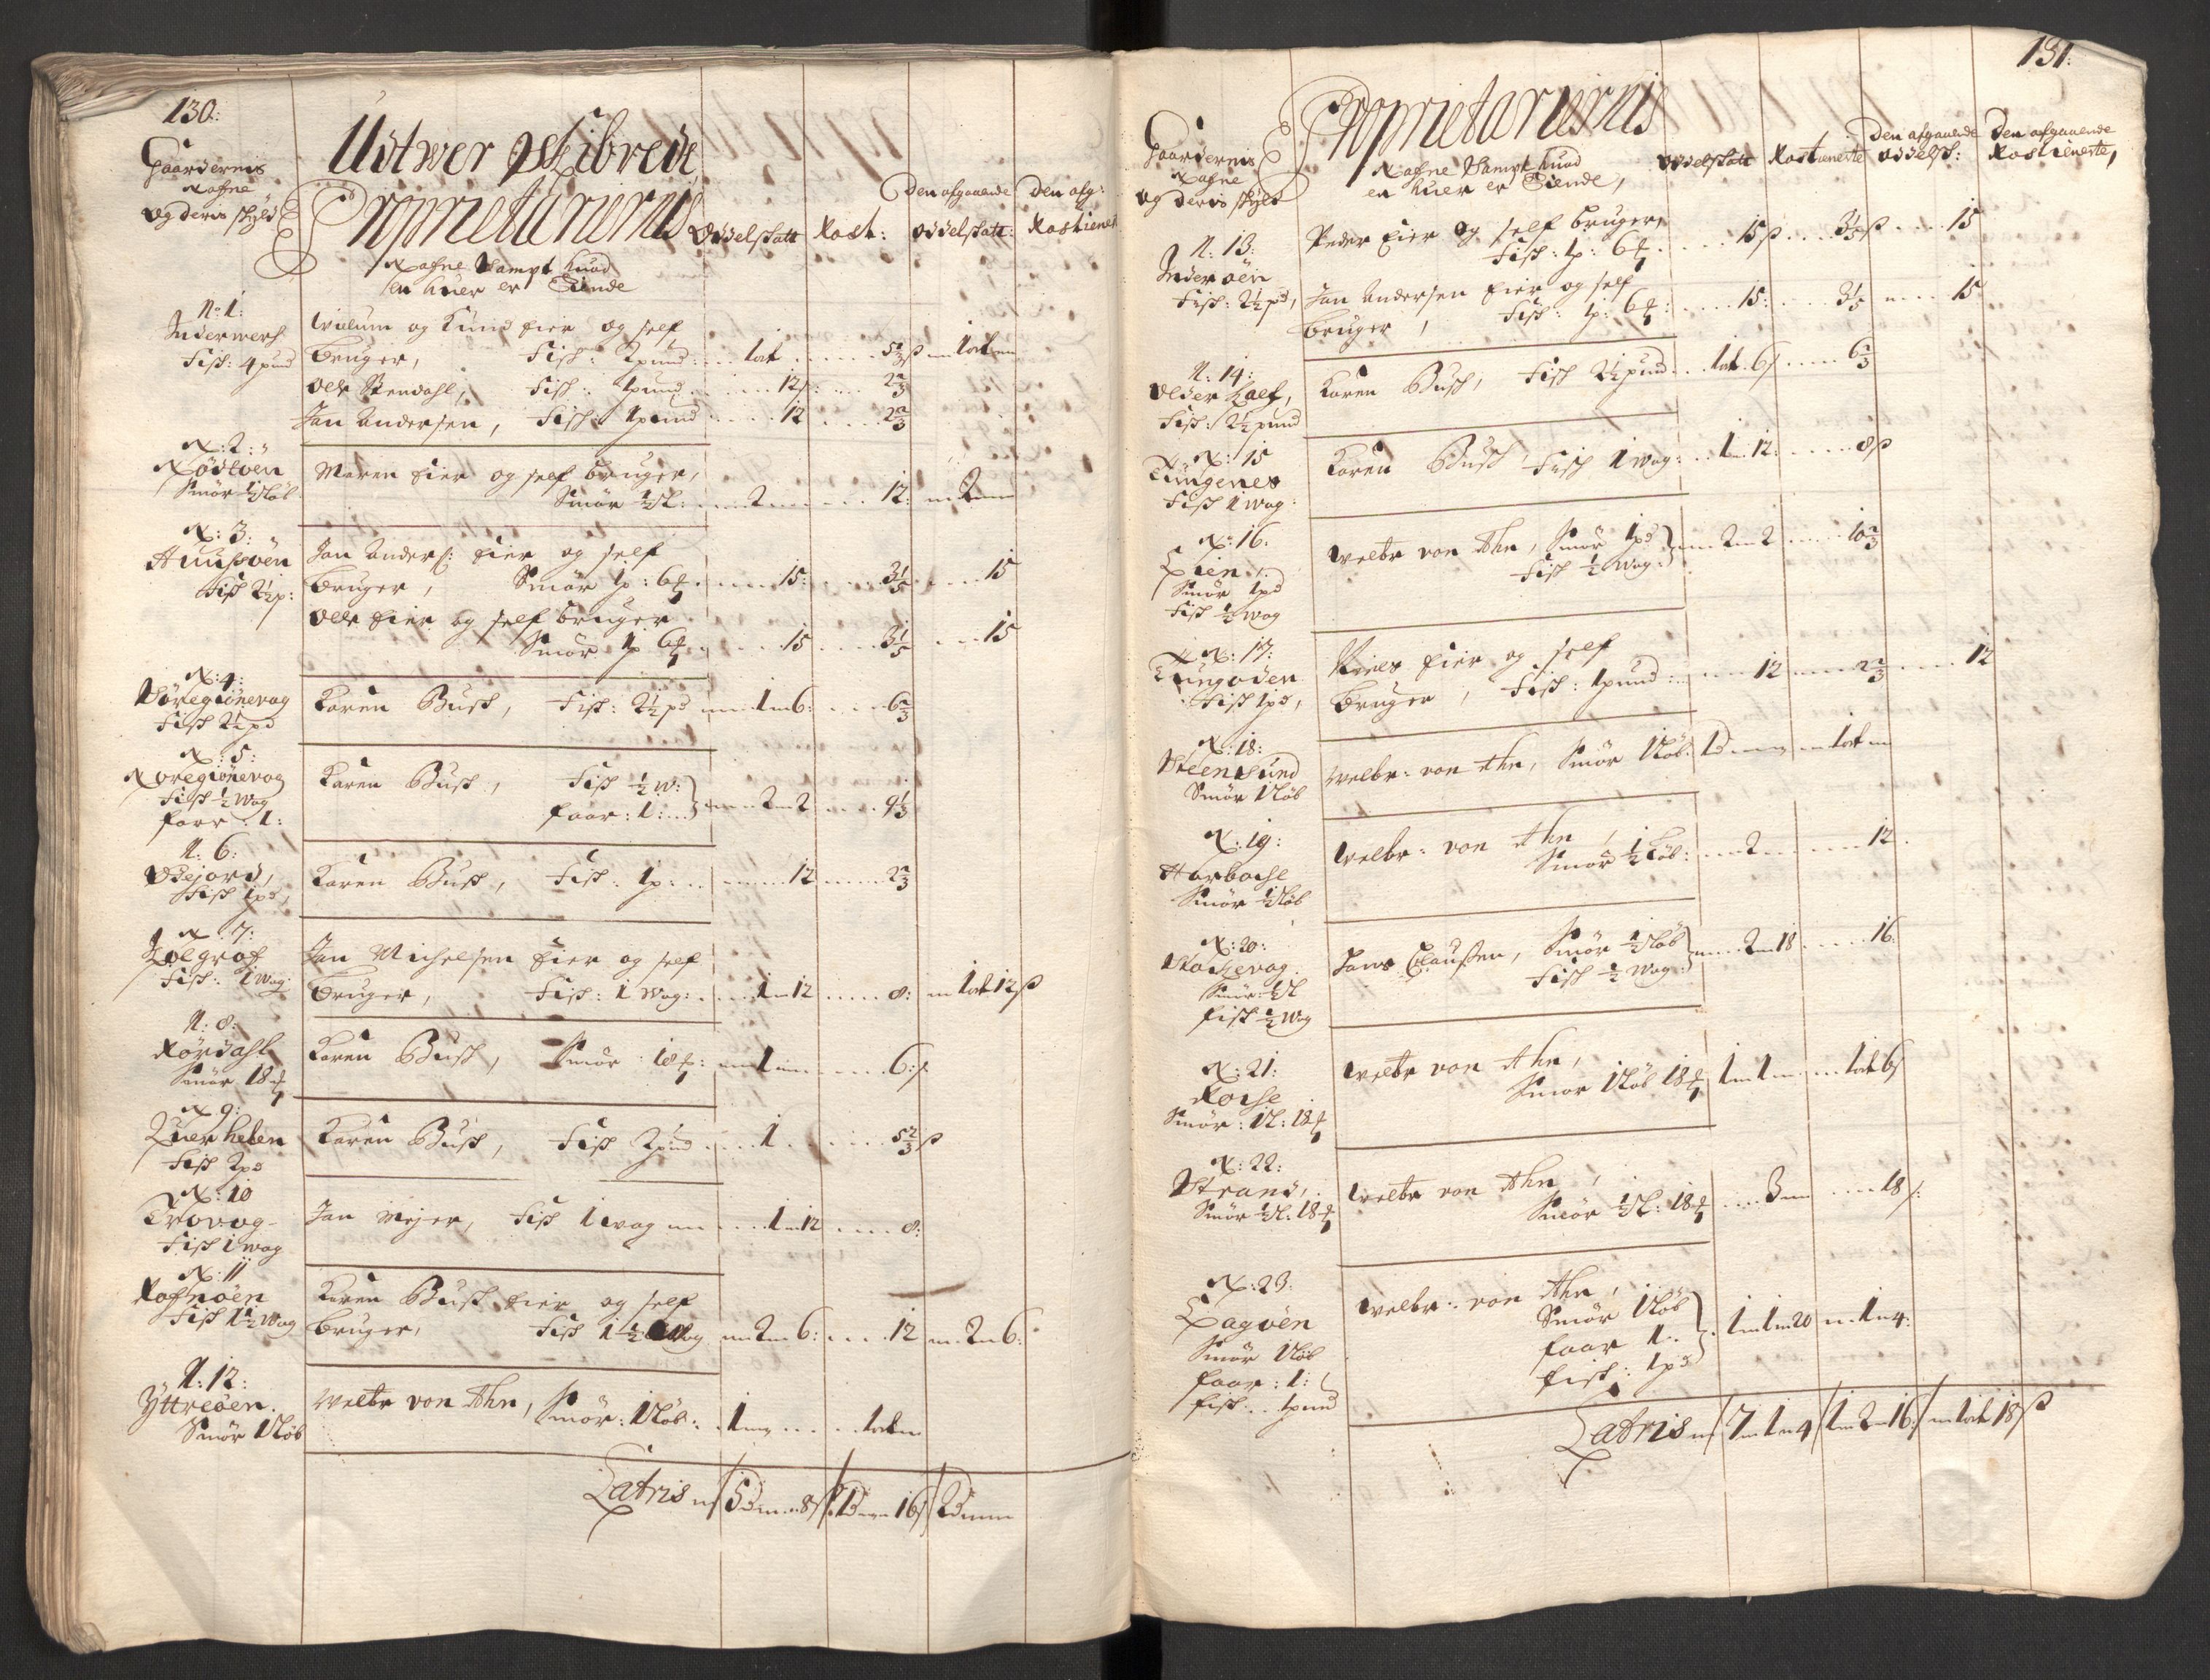 130:
Gaardernis
Nafne
og deris skyld
Udtwer Skibrede
Proprietariernis
Nafne Sampt huad
en huer er Eiende
Oddelskatt
Rost:
Den afgaaende
Oddelskatt:
Den afg:
Rostienest
No 1:
Inderwers
Fisk: 4 pund
Willum og Knud Eier og self
bruger, Fisk: 2 pund: 1 ort 5 2/3 ß 1 ort
Olle Stendahl, Fisk: 1 pund 12 ß: 2 2/3
Jan Andersen, Fisk: 1 pund 12 2 2/3
N: 2:
Nödtöen
Smör ½ Löb
Maren Eier og self bruger,
Smör ½ L: 2 12: 2
N: 3:
Huusöen
Fisk 2½ p:
Jan Anders: Eier og self
bruger, Smör 1 p: 6 15: 3 1/5 15
Olle Eier og self bruger
Smör 1 p 6 15 3 1/5 15
N: 4:
Söregiönevog
Fisk 2½ pd
Karen Busk, Fisk: 2½ pd 1 6: 6 2/3
N: 5:
Noregiönevog
Fisk ½ Wog
faar: 1:
Karen Busk, Fisk ½ W:
faar: 1: 2 2 9 1/3
N: 6:
Odejord,
Fisk 1 pd,
Karen Busk, Fisk: 1 p: 12 2 2/3
N: 7:
Kolgrof
Fisk: 1 Wog
Jan Michelsen Eier og self
bruger, Fisk: 1 Wog: 1 12 8: 1 ort 12 ß
N: 8:
Rördahl
Smör 18
Karen Busk, Smör: 18: 1 6: ß
N 9:
Querhelen
Fisk 2 pd
Karen Busk, Fisk 2 pund 1 5 2/3 ß
N: 10
Trovog
Fisk 1 wog
Jan Mejer, Fisk 1 wog 1 12 8:
N: 11
Rafnöen
Fisk 1½ Wog
Karen Busk Eier og self
bruger, Fisk 1½ Wog 2 6: 12 2 6:
N: 12:
Yttreöen.
Smör 1 Löb
Welbr von Ahn, Smör: 1 Löb: 1 1 ort
Latris 5 8 ß 1 16 ß 2
131:
Gaardernis
Nafne
og deris skyld
Proprietariernis
Nafne Sampt huad
en huer er Eiende,
Oddelskatt
Rostieneste
Den afgaaende
Oddelsk:
Den afgaaende
Rostieneste,
N: 13:
Inderöen
Fisk: 2½ pd,
Peder Eier og self bruger,
Fisk: 1 p: 6 15 ß 3 1/5 ß 15
Jan Andersen Eier og self
bruger, Fisk: 1 p: 6: 15: 3 1/5 15
N: 14:
Fisk: 2½ pund
Karen Busk, Fisk 2½ pund 1 ort 6 ß 6 2/3
N: 15
Tungenes
Fisk 1 wog:
Karen Busk, Fisk 1 wog: 1 12: 8 ß
N: 16:
Lien:
Smör 1 pd
Fisk ½ wog
Welbr von Ahn, Smör 1 pd
Fisk ½ wog: 2 2 10 2/3
N: 17:
Tungoden
Fisk 1 pd,
Niels Eier og self
bruger, Fisk: 1 pund: 12 2 2/3 12
N: 18:
Steensund
Smör 1 Löb
Welbr: von Ahn, Smör 1 Löb: 1 1 ort
N: 19:
Harbache
Smör ½ Löb
Welbr: von Ahn,
Smör ½ Löb: 2 12.
N: 20:
Stochevog
Smör: ½ L
Fisk ½ Wog
Hans Claußen, Smör ½ Löb
Fisk ½ wog: 2 18 16:
N: 21:
Rorse
Smör: 1 L: 18
Welbr von Ahn,
Smör 1 Löb 18 1 1 1 ort 6 ß
N: 22:
Strand,
Smör ½ L: 18
Welbr von Ahn,
Smör ½ L: 18 3 18 ß:
N: 23:
Lagöen
Smör 1 Löb
faar: 1:
fisk: 1 pund
Welbr: von Ahn,
Smör 1 Löb
faar 1:
fisk: 1 pd 1 1 20 1 4:
Latris 7 1 4 1 2 16 ß 1 ort 18 ß